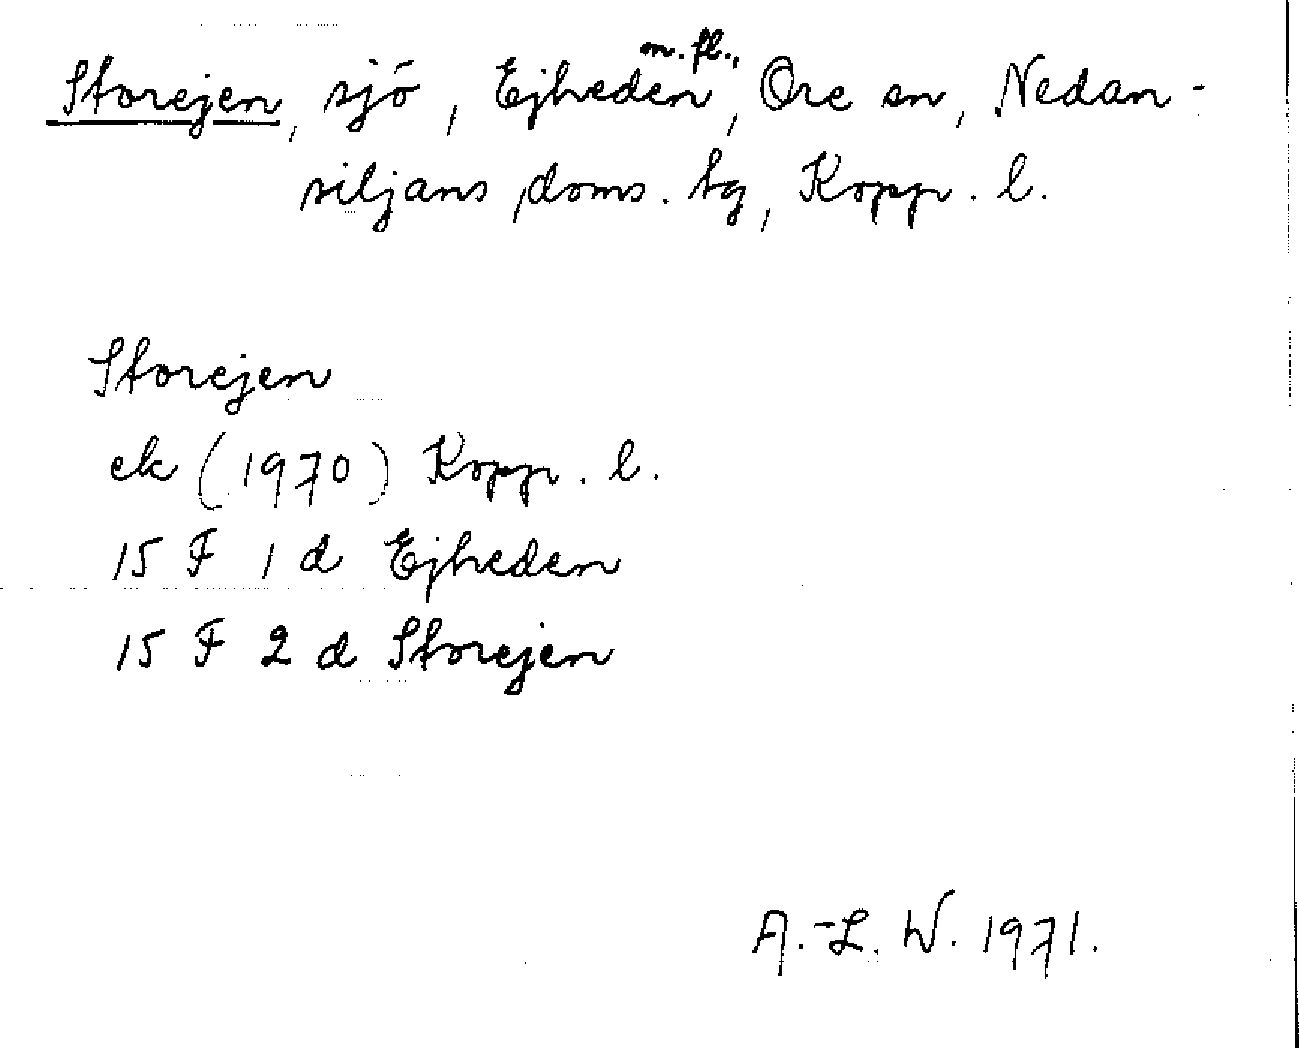 Storejen, sjö, Ejheden m.fl., Ore sn, Nedan-
siljans doms. tg, Kopp. l.
Storejen
ek (1970) Kopp. l.
15 F 1 d Ejheden
15 F 2 d Storejen
A.-L. W. 1971.